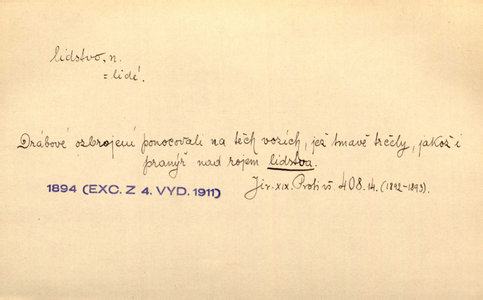 lidstvo, n.
= lidé.
Drábové ozbrojení ponocovali na těch vozích, jež tmavě trčely, jakož i
pranýř nad rojem lidstva.
1894 (EXC. Z 4. VYD. 1911)
Jir. XIX. Proti vš. 408. 14. (1892-1893).